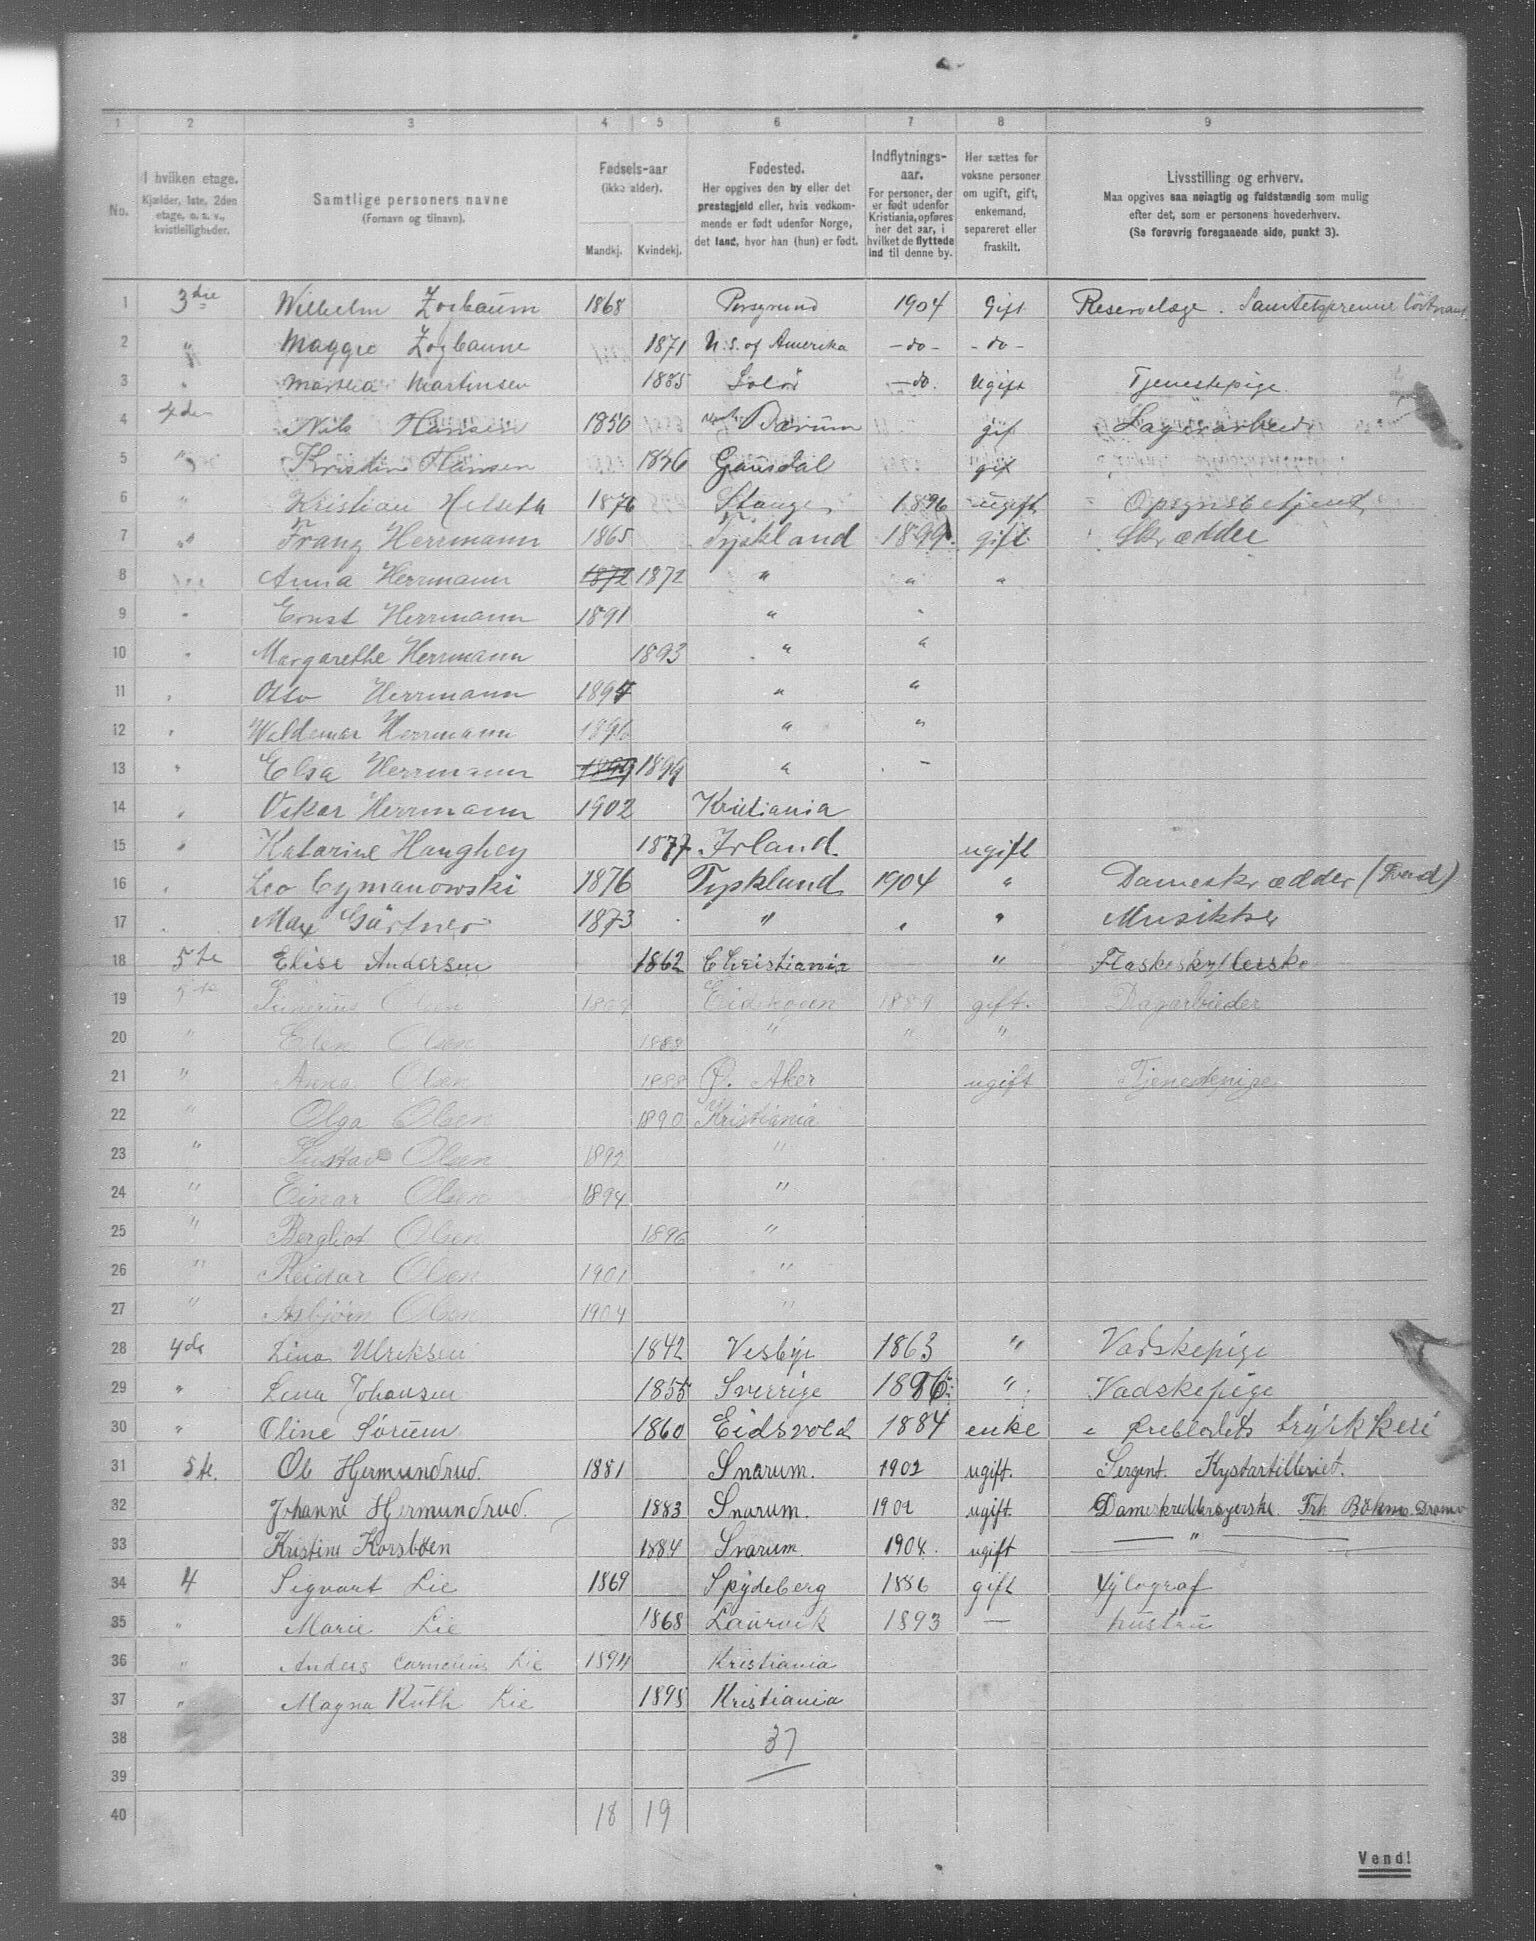 1 2 3 4 5 6 7 8 9
No.
I hvilken etage. Kjælder, 1ste, 2den etage, o. s. v., kvistleiligheder.
Samtlige personers navne (Fornavn og tilnavn).
Fødsels-aar (ikke alder). Mandkj. Kvindekj.
Fødested. Her opgives den by eller det prestegjeld eller, hvis vedkommende er født udenfor Norge, det land, hvor han (hun) er født.
Indflytnings-aar. For personer, der er født udenfor Kristiania, opføres her det aar, i hvilket de flyttede ind til denne by.
Her sættes for voksne personer om ugift, gift, enkemand, separeret eller fraskilt.
Livsstilling og erhverv. Maa opgives saa nøiagtig og fuldstændig som mulig efter det, som er personens hovederhverv. (Se forøvrig foregaaende side, punkt 3).
1 3die Wilhelm Zogbaum 1868 Porsgrund 1904 Gift Reservelæge.
2 " Maggie Zogbaum 1871 U. S. of Amerika -do- -do-
3 " Martha Martinsen 1885 Solør -do. Ugift Tjenestepige
4 4de Nils Hansen 1850 Bærum gift Lagerarbeider
5 " Kristine Hansen 1856 Gausdal gift
6 " Kristian Helseth 1876 Stange 1896 ugift Opsynsbetjent
7 " Franz Herrmann 1865 Tyskland 1899. gift Skrædder
8 Anna Herrmann 1872 1872 " " "
9 " Ernst Herrmann 1891 " "
10 " Margarethe Herrmann 1893 " "
11 " Otto Herrmann 1894 " "
12 " Waldemar Herrmann 1896 " "
13 " Elsa Herrmann 1899 1899 " -
14 " Oskar Herrmann 1902 Kristiania
15 " Katarine Haughey 1877 Irland ugift
16 " Leo Cymanowski 1876 Tyskland 1904 " Dameskrædder
17 Max Gärtner 1873 " " " Musikker
18 5te Elise Andersen 1862 Christiania " Flaskeskyllerske
19 5te Olsen Eidskoven 1889 gift. Dagarbeider
20 " Olsen 1888 " " "
21 " Anna Olsen 1888 Ø. Aker ugift Tjenestepige
22 " Olga Olsen 1890 Kristiania
23 " Gustav Olsen 1892 "
24 " Einar Olsen 1894 "
25 " Bergliot Olsen 1896 "
26 " Reidar Olsen 1901 "
27 " Asbjørn Olsen 1904 "
28 4de Lina Ulriksen 1842 Vesbye 1863 " Vadskepige
29 " Lina Johansen 1855 Sverrige 1876 " Vadskepige
30 " Oline Sørum 1860 Eidsvold 1884 enke Ørebladets trykkeri
31 5te. Ole Hermundrud. 1881 Snarum. 1902 ugift. Sergent. Kystartilleriet.
32 Johanne Hermundrud. 1883 Snarum. 1902 ugift. Damekreddersyerske.
33 Kristine Korsbøen 1884 Snarum. 1904. ugift "
34 4 Sigvart Lie 1869 Spydeberg 1886 gift Xylograf
35 " Marie Lie 1868 Laurvik 1893 — hustru
36 " Anders Cornelius Lie 1894 Kristiania
37 " Magna Ruth Lie 1898 Kristiania
38 37
39
40 18 19
Vend!